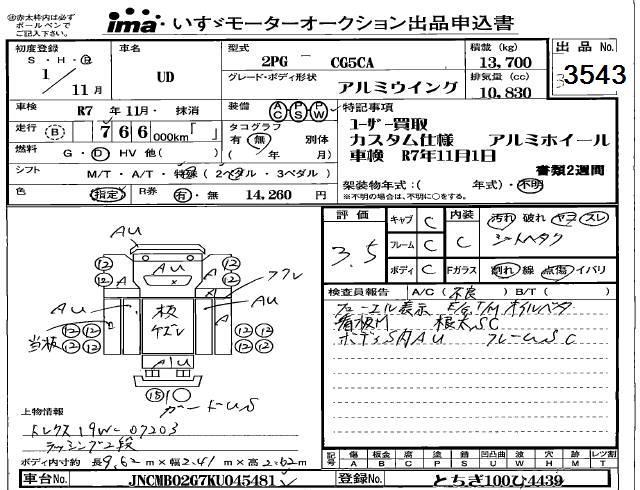 ㊟赤太枠は必ず
ボールペンで
ご記入下さい。
ima いすゞモーターオークション出品申込書
初度登録
S・H・R
1 / 11月
車名
UD
型式
2PG － CG5CA
積載 (kg)
13,700
グレード・ボディ形状
アルミウイング
排気量 (cc)
10,830
出品 No.
3543
車検 R7 年 11月・ 抹消
装備 AC PS PW
特記事項
ユーザー買取
カスタム仕様 アルミホイール
車検 R7年11月1日
書類2週間
走行 B 766,000km「 」
タコグラフ
有・無 別体
( 年 月)
燃料 G・D HV 他( )
シフト M/T・A/T・特殊 (2ペダル・3ペダル)
色 指定 R券 有・無 14,260 円
架装物年式:( 年式)・不明
※不明の場合は、不明に○をする。
評価
3.5
キャブ C
フレーム C
ボディ C
内装 C
Fガラス
汚れ 破れ ヤコ スレ
シートヘタク
割れ 線 点傷 イバリ
検査員報告 A/C (不良) B/T( )
フューエル表示 E/G,T/M オイルベタ
縞板M 根太SC
ボディS内AU フレームSC
AU
AU
12
12
12
12
A
A
A
A
フクレ
AU
AU
板
ケズレ
当板
12
12
12
12
12
12
12
12
AU
15
ガードUS
上物情報
トレクス 19W-07203
ラッシング2段
ボディ内寸約 長 9.62 m × 幅 2.41 m × 高 2.62 m
記号
傷 A
鈑金 B
腐食 C
塗 P
錆 S
凹凸曲 U
波 W
穴 H
跡 M
レツ割 T
車台No. JNCMB02G7KU045481
登録No. とちぎ100ひ4439